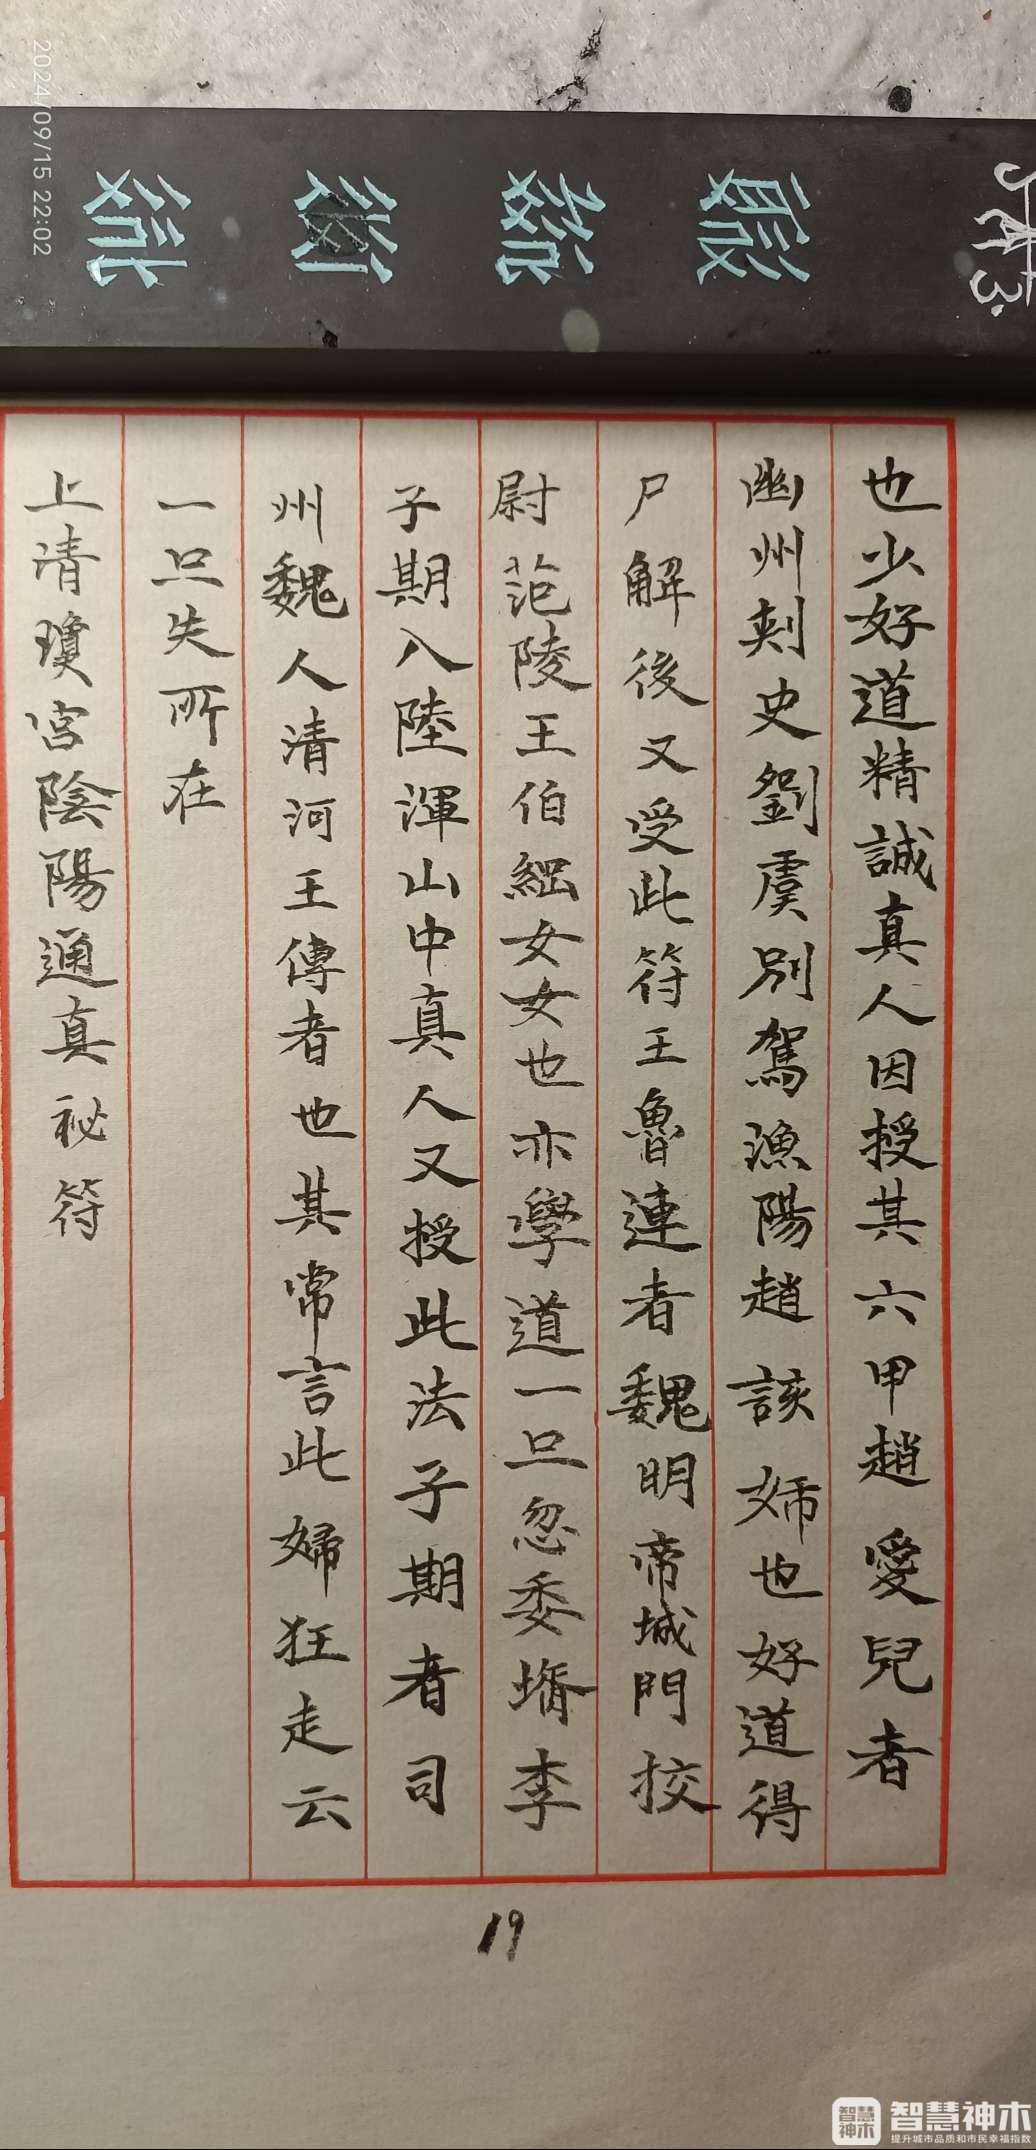 也少好道精誠真人因授其六甲趙愛兒者
幽州刾史劉虞別駕漁陽趙該姉也好道得
尸解後又受此符王魯連者魏明帝城門挍
尉范陵王伯綑女女也亦學道一旦忽委壻李
子期入陸渾山中真人又授此法子期者司
州魏人清河王傳者也其常言此婦狂走云
一旦失所在
上清瓊宮陰陽通真祕符
19
2024/09/15 22:02
智慧神木
智慧神木
提升城市品质和市民幸福指数